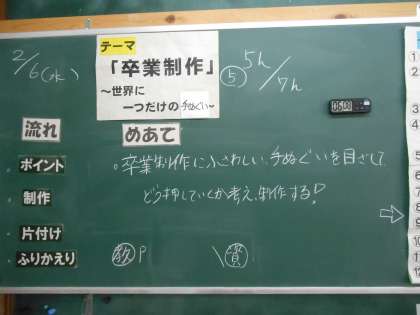 2/6(水)
テーマ
「卒業制作」
～世界に
一つだけの手ぬぐい～
⑤ 5h/7h
05:00
流れ
めあて
ポイント
制作
片付け
ふりかえり
。卒業制作にふさわしい、手ぬぐいを目ざして
どう押していくか考え、制作する!
教 P
資
①
②
③
④
⑤
⑥
⑦
⑧
⑨